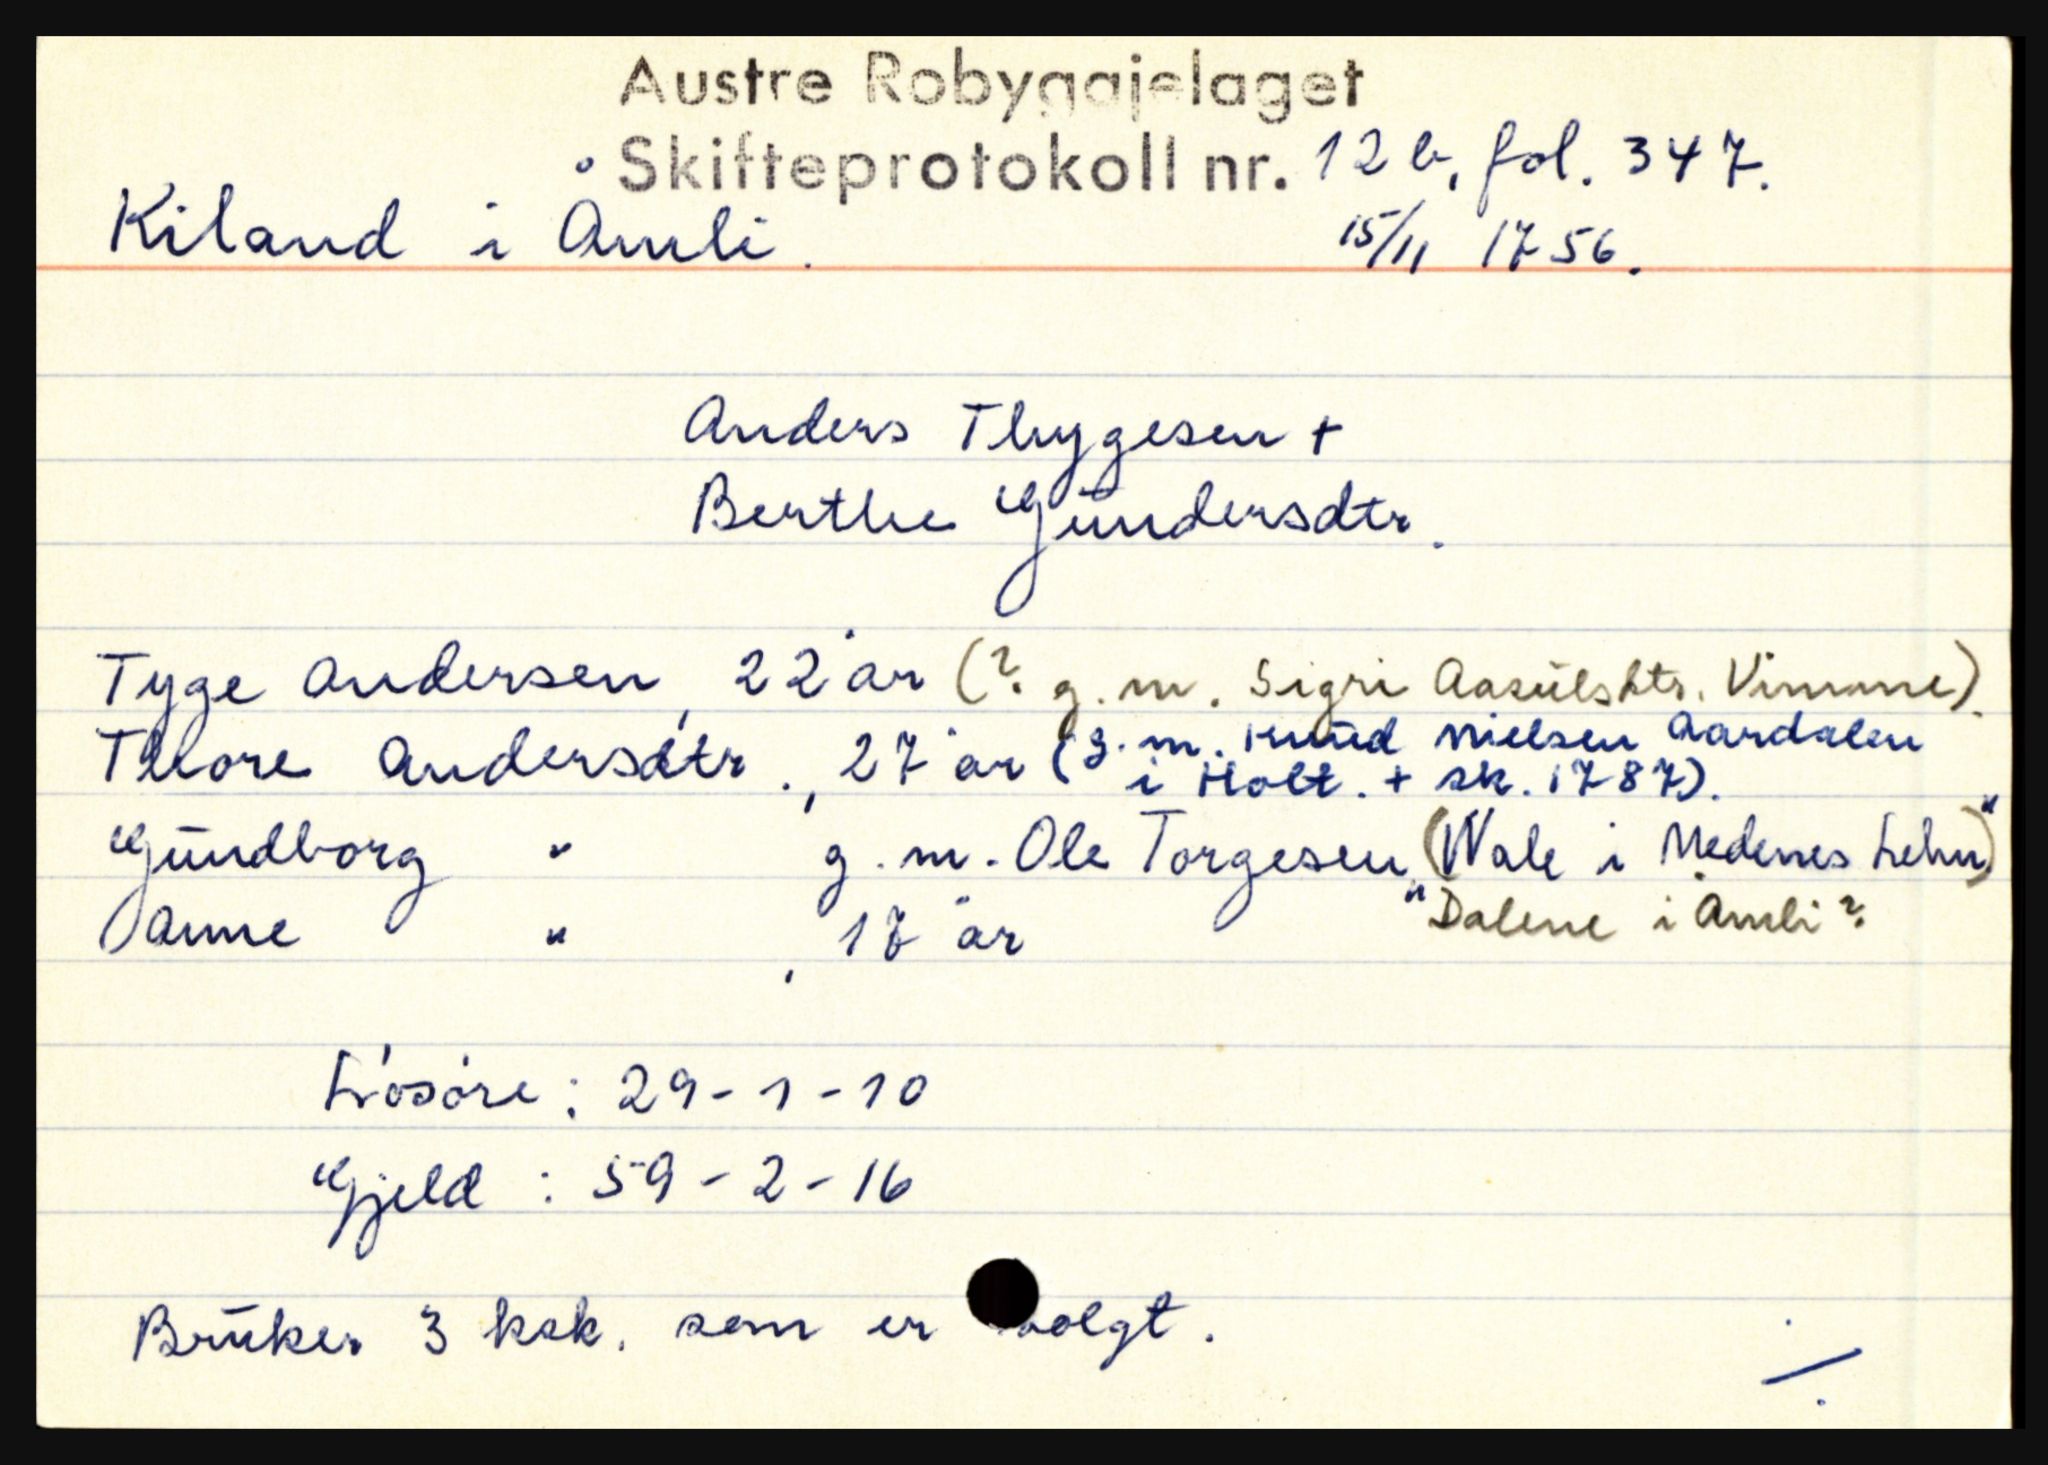 Austre Robyggjelaget
Skifteprotokoll nr. 12 b, fol. 347.
Kiland i Åmli. 15/11 1756.
Anders Thygesen +
Berthe Gundersdtr.
Tyge Andersen, 22 år (? g.m. Sigri Aasulsdtr. Vimme).
Thore Andersdtr., 27 år (g.m. Knud Nielsen Aardalen
i Holt. + sk. 1787).
Gundborg " g.m. Ole Torgesen (Wale i Nedenes Lehn)"
Anne " , 17 år "Dalene i Åmli?
Løsøre: 29-1-10
Gjeld: 59-2-16
Bruker 3 ksk. som er solgt.